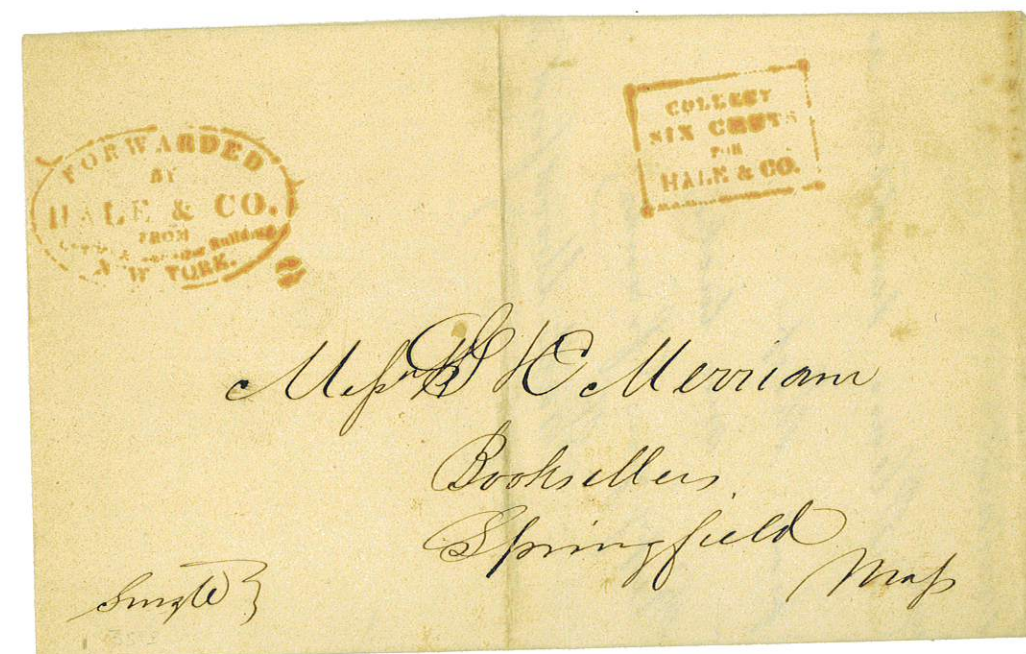 FORWARDED
BY
HALE & CO.
FROM
Building
NEW YORK.
COLLECT
SIX CENTS
FOR
HALE & CO.
Messrs G & C Merriam
Booksellers
Springfield
Mass
Single